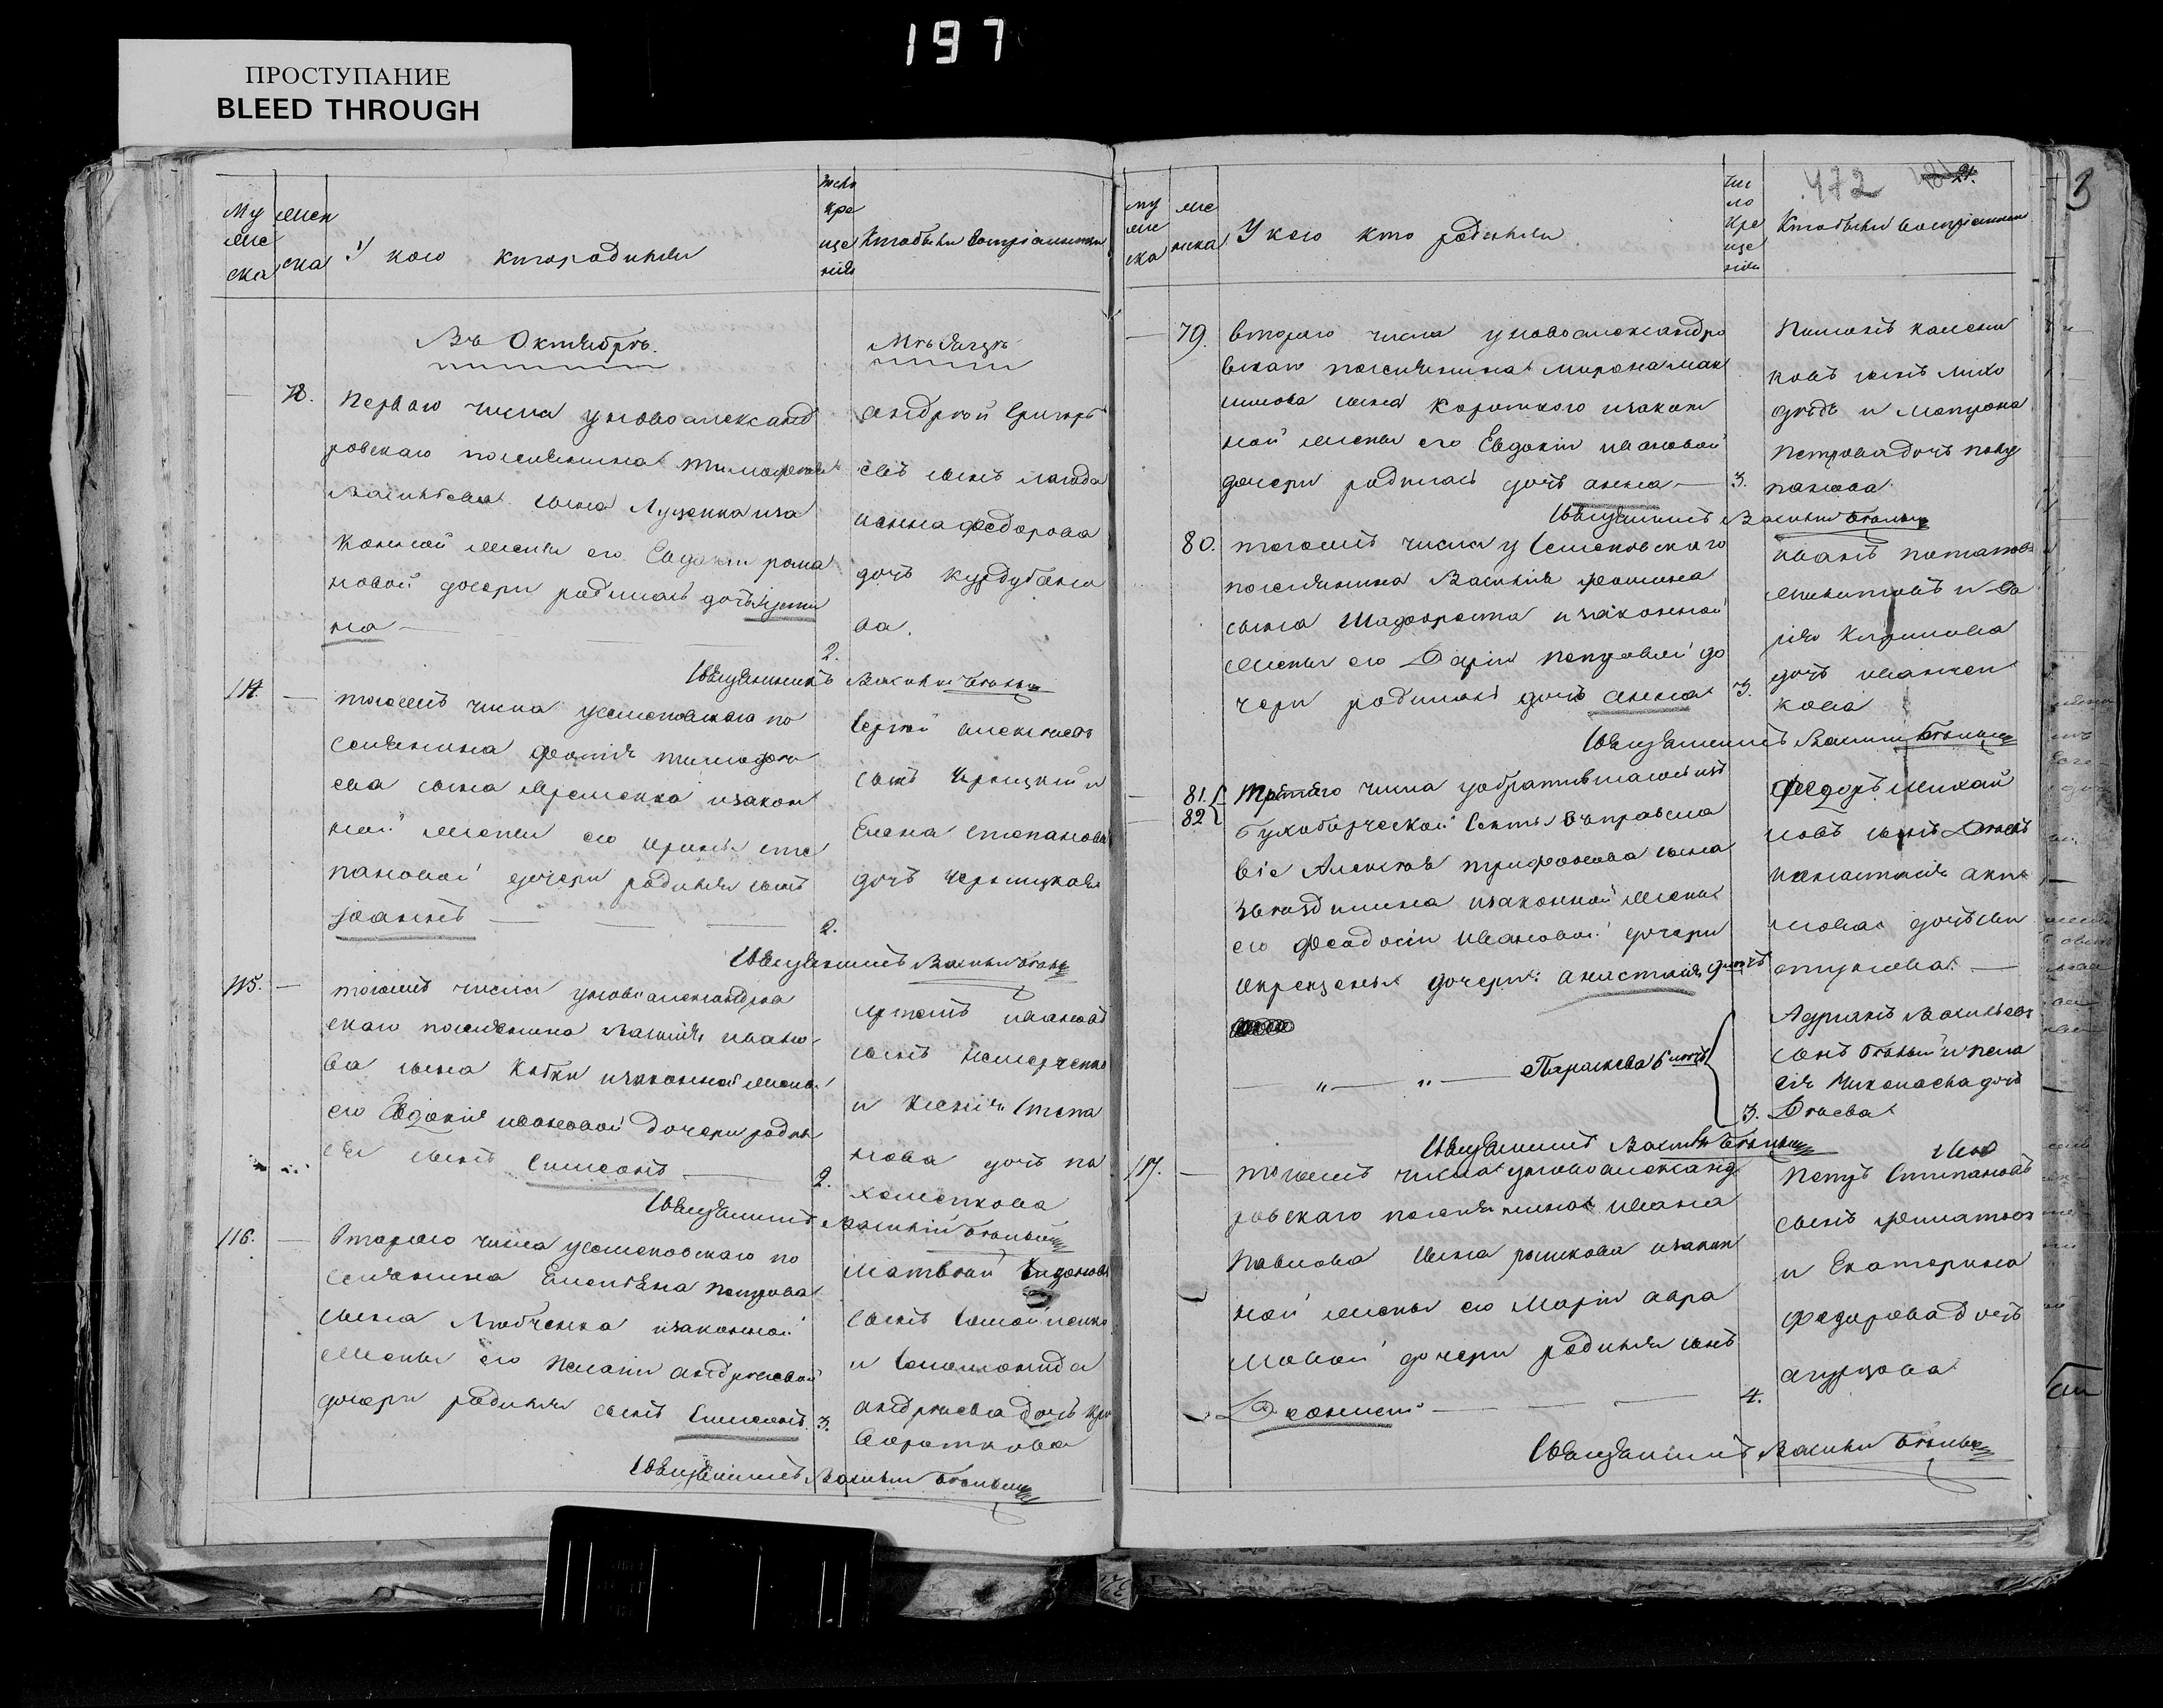 197
ПРОСТУПАНИЕ
BLEED THROUGH
Му
жс
ска
женска
У кого кто родился
число
кре
ще
нія
Кто были воспріемники
Въ Октябрѣ.
Мѣсяцѣ
78.
перваго числа у новоалександ
ровскаго поселянина Тимофея
Васильева сына Луценка и за
конной жены его Евдокіи рома
новой дочери родилась дочь Іусти
на
2.
андрей Григорь
евъ сынъ
и анна федорова
дочь Курдубано
ва.
Священникъ Василій Бѣлый
114.
тогожъ числа у семеновскаго по
селянина фотія тимофее
ева сына Яременка и закон
ной жены его ирины сте
пановой дочери родился сынъ
Іоаннъ
2.
Сергей алексеевъ
сынъ Чернецкій и
Елена степанова
дочь чернецкова
Священникъ Василій Бѣлый
115.
тогожъ числа у новоалександров
скаго поселянина Василія ивано
ва сына Кобки и законной жены
его Евдокіи ивановой дочери родил
ся сынъ Симеонъ
2.
артемъ ивановъ
сынъ
и Ксенія Степа
нова дочь па
хоменкова
Священникъ Василій Бѣлый
116.
втораго числа у семеновскаго по
селянина Емельяна петрова
сына Любченка и законной
жены его пелагіи андреевой
дочери родился сынъ Симеонъ
3.
Матвей
сынъ Самойленко
и Соломонида
андреева дочь кри
вороткова
Священникъ Василій Бѣлый
му
жс
ска
же
нска
У кого кто родился
чис
ло
кре
ще
нія
472
21.
Кто были воспріемники
79.
втораго числа у новоалександро
вскаго поселянина мирона мак
симова сына Короткого и закон
ной жены его Евдокіи ивановой
дочери родилась дочь анна
3.
ковъ сынъ лихо
дѣдъ и матрона
петрова дочь
Священникъ Василій Бѣлый
80.
тогожъ числа у Семеновского
поселянина Василія фомина
сына и законной
жены его Даріи петровой до
чери родилась дочь анна
3.
иванъ потаповъ
и Да
рія Кирилова
дочь иванчен
кова
Священникъ Василій Бѣлый
81.
82
Третяго числа у обратившагося изъ
Духоборческой секты въ правосла
віе Алексея трифонова сына
Звездилина и законной жены
его феодосіи ивановой дочери
окрещены дочери: анастасія
федоръ михай
ловъ сынъ Дѣевъ
и анастасія аки
мова дочь
Параскева 6 летъ
3.
Адріанъ Васильевъ
сынъ бѣлый и пела
гія Николаева дочь
Дѣева
Священникъ Василій Бѣлый
117.
тогожъ числа у новоалександ
ровскаго поселянина ивана
павлова сына рожкова и закон
ной жены его Маріи авра
мовой дочери родился сынъ
Діонисій
4.
Петръ Степановъ
сынъ филатовъ
и Екатерина
федорова дочь
Священникъ Василій Бѣлый